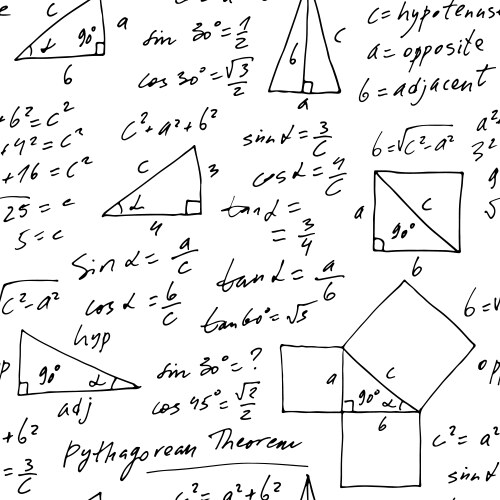 c
a
90°
α
b
sin 30° = 1/2
cos 30° = √3/2
b
c
a
c = hypotenus
a = opposite
b = adjacent
+ b² = c²
+ 4² = c²
+ 16 = c²
25 = c
5 = c
c² + a² + b²
c
3
α
4
sin α = 3/c
cos α = 4/c
tan α =
= 3/4
b = √c² - a²
a²
3²
a
c
90°
b
sin α = a/c
cos α = b/c
tan α = a/b
tan 60° = √3
√c² - a²
hyp
90°
α
adj
sin 30° = ?
cos 45° = √2/2
a
c
90°
α
b
b = √
op
+ b²
= 3/c
Pythagorean Theorem
c² = a² + b²
c² = a²
sin α